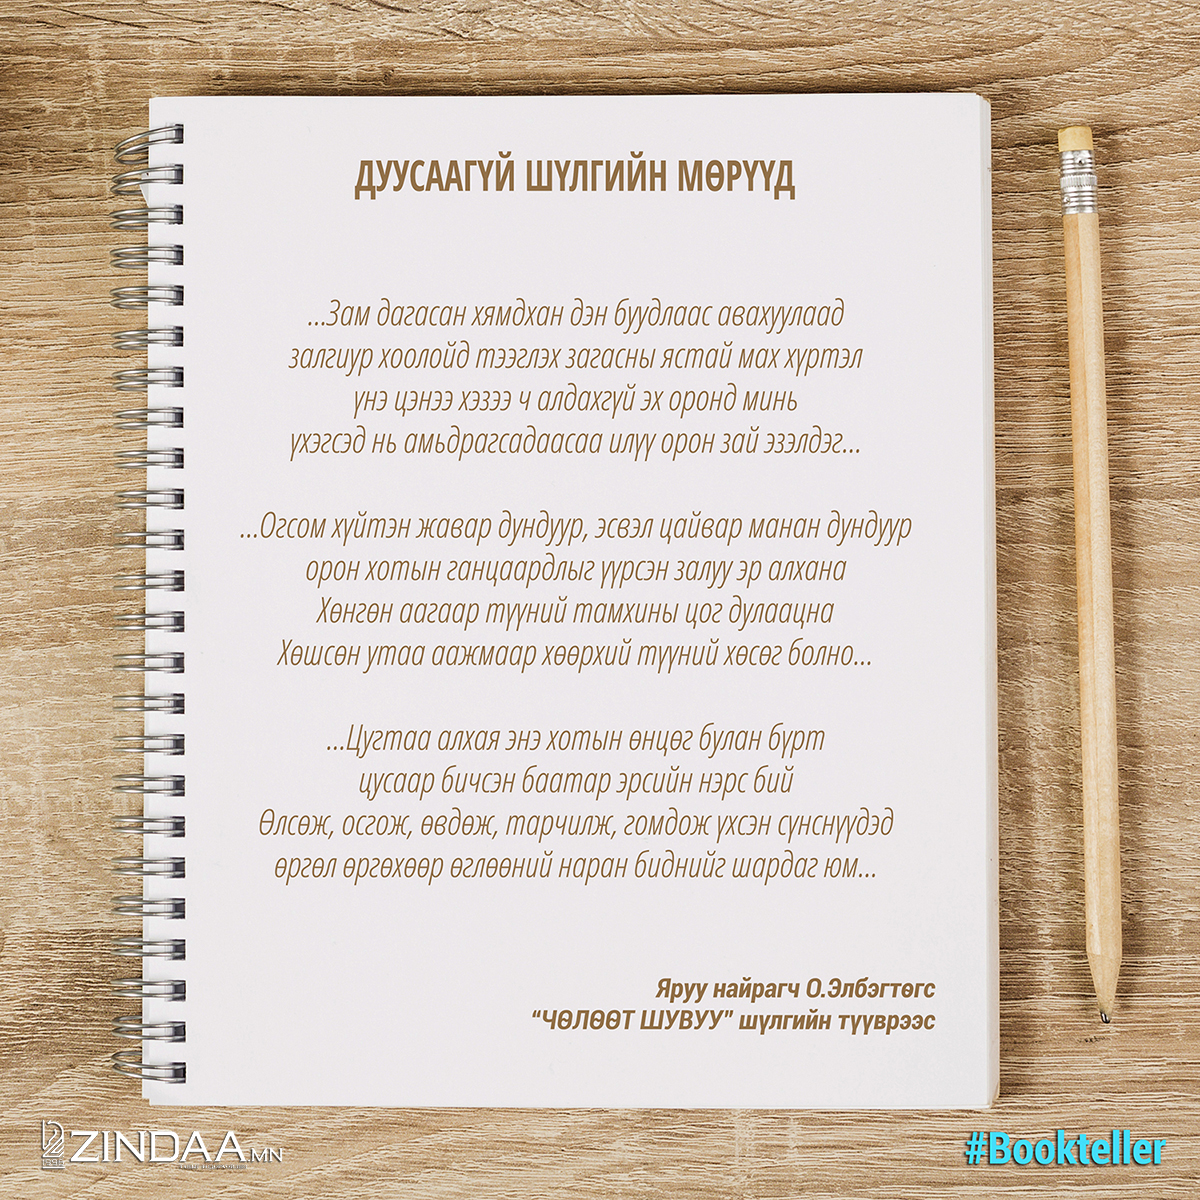 ДУУСААГҮЙ ШҮЛГИЙН МӨРҮҮД
...Зам дагасан хямдхан дэн буудлаас авахуулаад
залгиур хоолойд тээглэх загасны ястай мах хүртэл
үнэ цэнээ хэзээ ч алдахгүй эх оронд минь
үхэгсэд нь амьдрагсадаасаа илүү орон зай эзэлдэг...
...Огсом хүйтэн жавар дундуур, эсвэл цайвар манан дундуур
орон хотын ганцаардлыг үүрсэн залуу эр алхана
Хөнгөн аагаар түүний тамхины цог дулаацна
Хөшсөн утаа аажмаар хөөрхий түүний хөсөг болно...
...Цугтаа алхая энэ хотын өнцөг булан бүрт
цусаар бичсэн баатар эрсийн нэрс бий
Өлсөж, осгож, өвдөж, тарчилж, гомдож үхсэн сүнснүүдэд
өргөл өргөхөөр өглөөний наран биднийг шардаг юм...
Яруу найрагч О.Элбэгтөгс
“ЧӨЛӨӨТ ШУВУУ” шүлгийн түүврээс
1995
ZINDAA.MN
#Bookteller